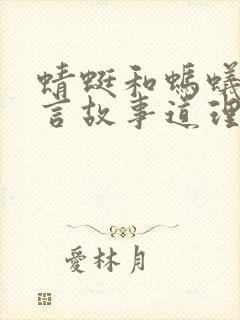 蜻蜓和螞蟻
言故事道理
愛林月